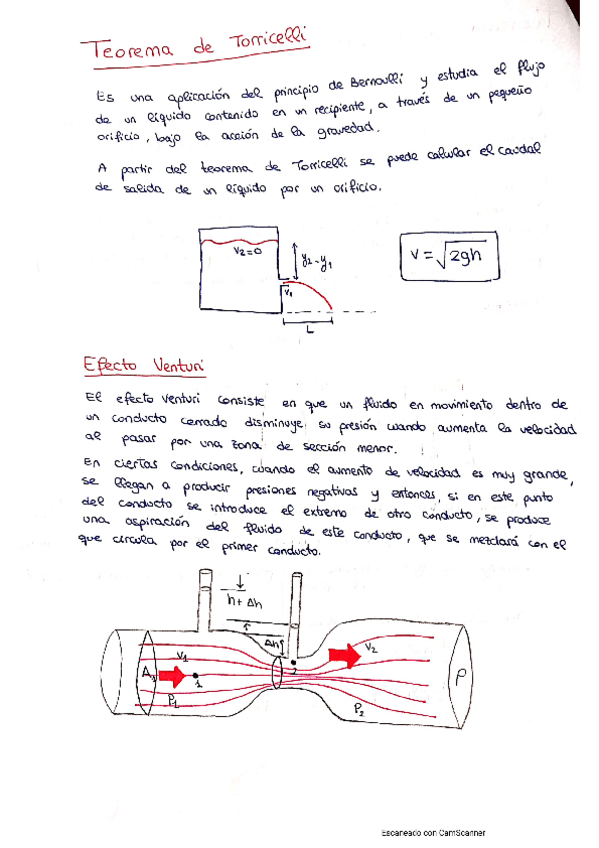 Teorema de Torricelli
Es una aplicación del principio de Bernoulli y estudia el flujo
de un líquido contenido en un recipiente, a través de un pequeño
orificio, bajo la acción de la gravedad.
A partir del teorema de Torricelli se puede calcular el caudal
de salida de un líquido por un orificio.
V2=0
y2-y1
V1
L
V = √2gh
Efecto Venturi
El efecto Venturi consiste en que un fluido en movimiento dentro de
un conducto cerrado disminuye su presión cuando aumenta la velocidad
al pasar por una zona de sección menor.
En ciertas condiciones, cuando el aumento de velocidad es muy grande,
se llegan a producir presiones negativas y entonces, si en este punto
del conducto se introduce el extremo de otro conducto, se produce
una aspiración del fluido de este conducto, que se mezclará con el
que circula por el primer conducto.
h+Δh
Δh
V1
V2
2
1
P1
P2
Escaneado con CamScanner